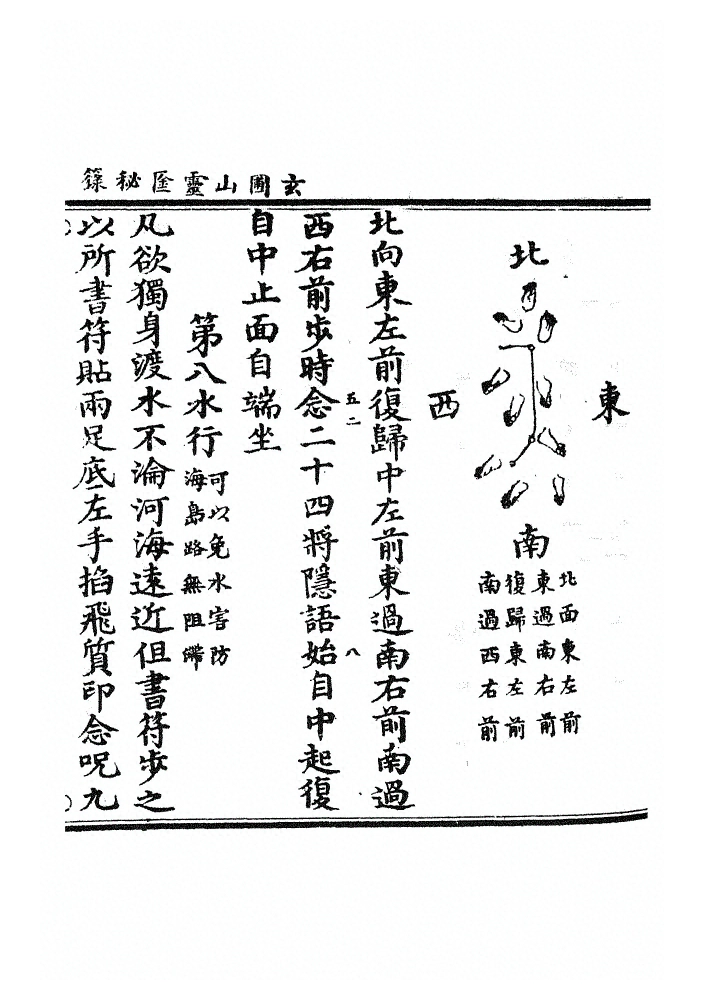 玄圃山靈匧秘籙
北
東
西
南
北面東左前
東過南右前
復歸東左前
南過西右前
北向東左前復歸中左前東過南右前南過
西右前步時念二十四將隱語始自中起復
五二
八
自中止面自端坐
第八水行
可以免水害防
海島路無阻滯
凡欲獨身渡水不淪河海遠近但書符步之
以所書符貼兩足底左手掐飛質印念呪九